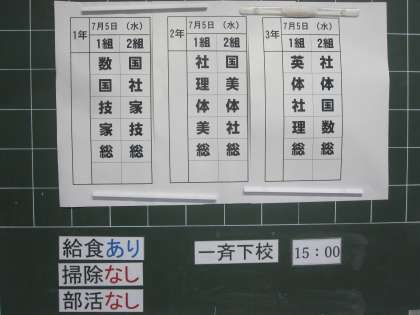 1年 7月5日 (水)
1組 2組
数 国
国 社
技 家
家 技
総 総
2年 7月5日 (水)
1組 2組
社 国
理 美
体 体
美 社
総 総
3年 7月5日 (水)
1組 2組
英 社
体 体
社 国
理 数
総 総
給食あり
掃除なし
部活なし
一斉下校 15:00